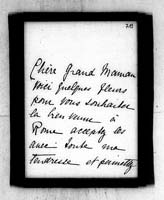 Chère Grand Maman
Voici quelques fleurs
pour vous souhaiter
la bienvenue à
Rome acceptez les
avec toute ma
tendresse et